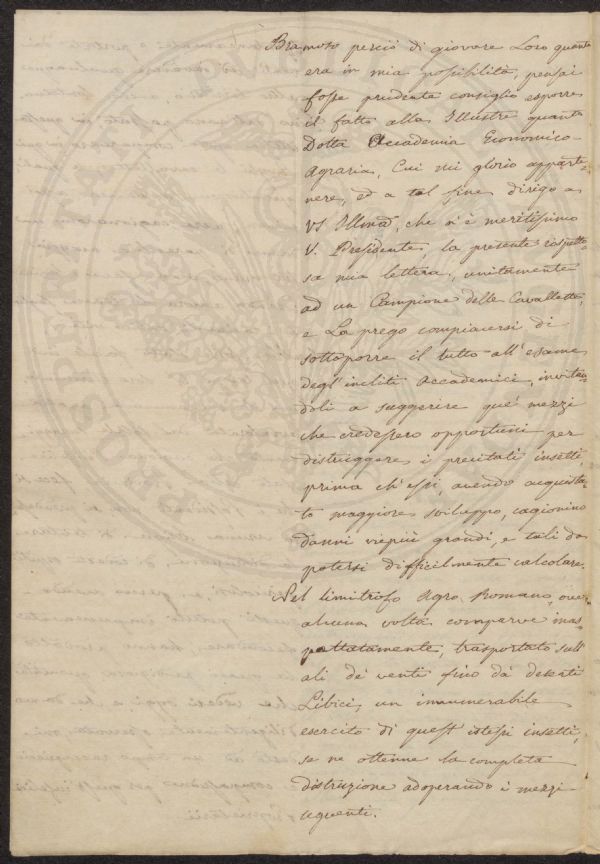 Bramoso perciò di giovare Loro quanto
era in mia possibilità, pensai
fosse prudente consiglio esporre
il fatto alla Illustre quanto
Dotta Accademia Economico-
Agraria, Cui mi glorio apparte-
nere, ed a tal fine dirigo a
VS. Illma, che n'è meritissimo
V. Presidente, la presente rispetto-
sa mia lettera, unitamente
ad un Campione delle Cavallette,
e La prego compiacersi di
sottoporre il tutto all'esame
degl'incliti Accademici, invitan-
doli a suggerire que' mezzi
che credessero opportuni per
distruggere i precitati insetti,
prima ch'essi, avendo acquista-
to maggiore sviluppo, cagionino
danni viepiù grandi, e tali da
potersi difficilmente calcolare.
Nel limitrofo Agro Romano, ove
alcuna volta comparve inas-
pettatamente, trasportato sull'
ali de' venti fino da' deserti
Libici, un innumerabile
esercito di quest'istessi insetti,
se ne ottenne la completa
distruzione adoperando i mezzi
seguenti.